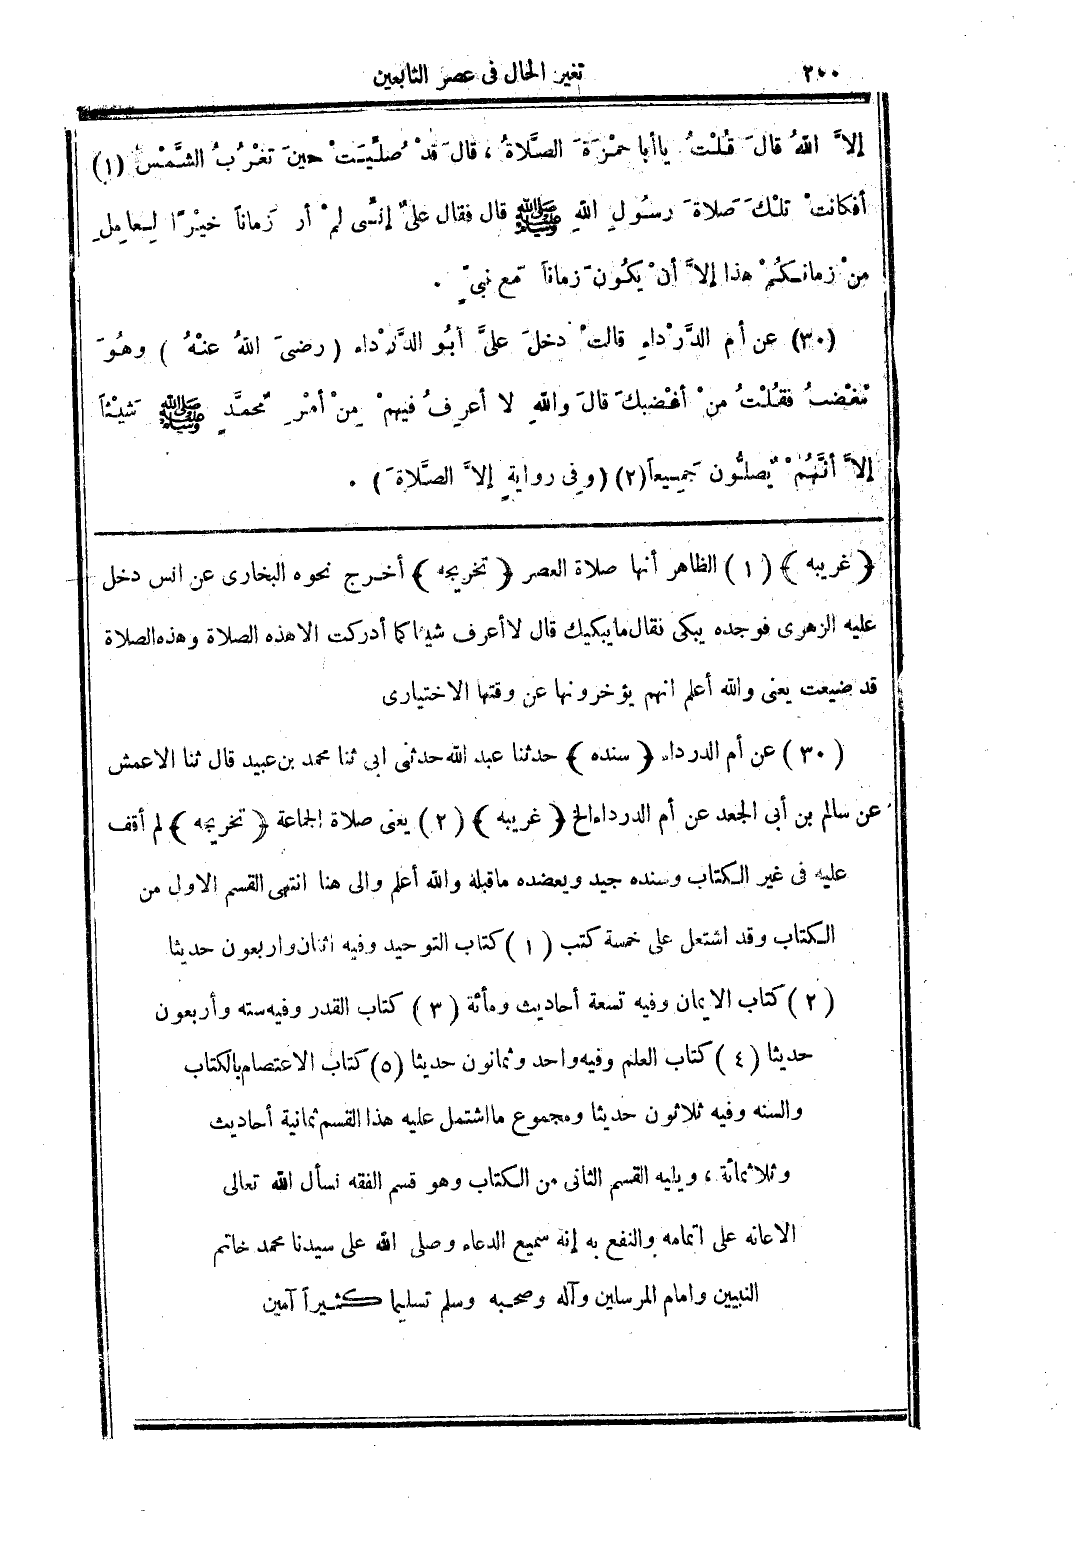 ٢٠٠ تغير الحال فى عصر التابعين
إلاَّ اللهُ قالَ قُلْتُ ياأبا حمْزَةَ الصَّلاةُ ، قالَ قَدْ صُلِّيَتْ حينَ تَغْرُبُ الشَّمْسُ (١)
أفكانتْ تلْكَ صلاةَ رسُولِ اللهِ ﷺ قال فقال علىٌ إنِّى لمْ أر زماناً خيْرًا لِعامِلٍ
منْ زمانكُمْ هذا إلاَّ أنْ يكُونَ زماناً مع نبىٍّ .
(٣٠) عن أم الدَّرْداءِ قالتْ دخلَ علىَّ أبُو الدَّرْداء ( رضىَ اللهُ عنْهُ ) وهُوَ
مُغْضبٌ فقُلْتُ منْ أغْضبكَ قالَ واللهِ لا أعرِفُ فيهمْ مِنْ أمْرِ محمَّدٍ ﷺ شيْئاً
إلاَّ أنَّهُمْ يُصلُّون جمِيعاً (٢) (وفِى روايةٍ إلاَّ الصَّلاةَ) .
﴿ غريبه ﴾ (١) الظاهر أنها صلاة العصر ﴿ تخريجه ﴾ أخرج نحوه البخارى عن انس دخل
عليه الزهرى فوجده يبكى نقال مايبكيك قال لاأعرف شيئا كما أدركت الاهذه الصلاة وهذه الصلاة
قد ضيعت يعنى والله أعلم انهم يؤخرونها عن وقتها الاختيارى
(٣٠) عن أم الدرداء ﴿ سنده ﴾ حدثنا عبد الله حدثنى ابى ثنا محمد بن عبيد قال ثنا الاعمش
عن سالم بن أبى الجعد عن أم الدرداء الخ ﴿ غريبه ﴾ (٢) يعنى صلاة الجماعة ﴿ تخريجه ﴾ لم أقف
عليه فى غير الكتاب وسنده جيد ويعضده ماقبله والله أعلم والى هنا انتهى القسم الاول من
الكتاب وقد اشتعل على خمسة كتب (١) كتاب التوحيد وفيه اثنان واربعون حديثا
(٢) كتاب الايمان وفيه تسعة أحاديث ومائة (٣) كتاب القدر وفيه سته وأربعون
حديثا (٤) كتاب العلم وفيه واحد وثمانون حديثا (٥) كتاب الاعتصام بالكتاب
والسنه وفيه ثلاثون حديثا ومجموع مااشتمل عليه هذا القسم ثمانية أحاديث
وثلاثمائة ، ويليه القسم الثانى من الكتاب وهو قسم الفقه نسأل الله تعالى
الاعانه على اتمامه والنفع به إنه سميع الدعاء وصلى الله على سيدنا محمد خاتم
النبيين وامام المرسلين وآله وصحبه وسلم تسليما كثيراً آمين